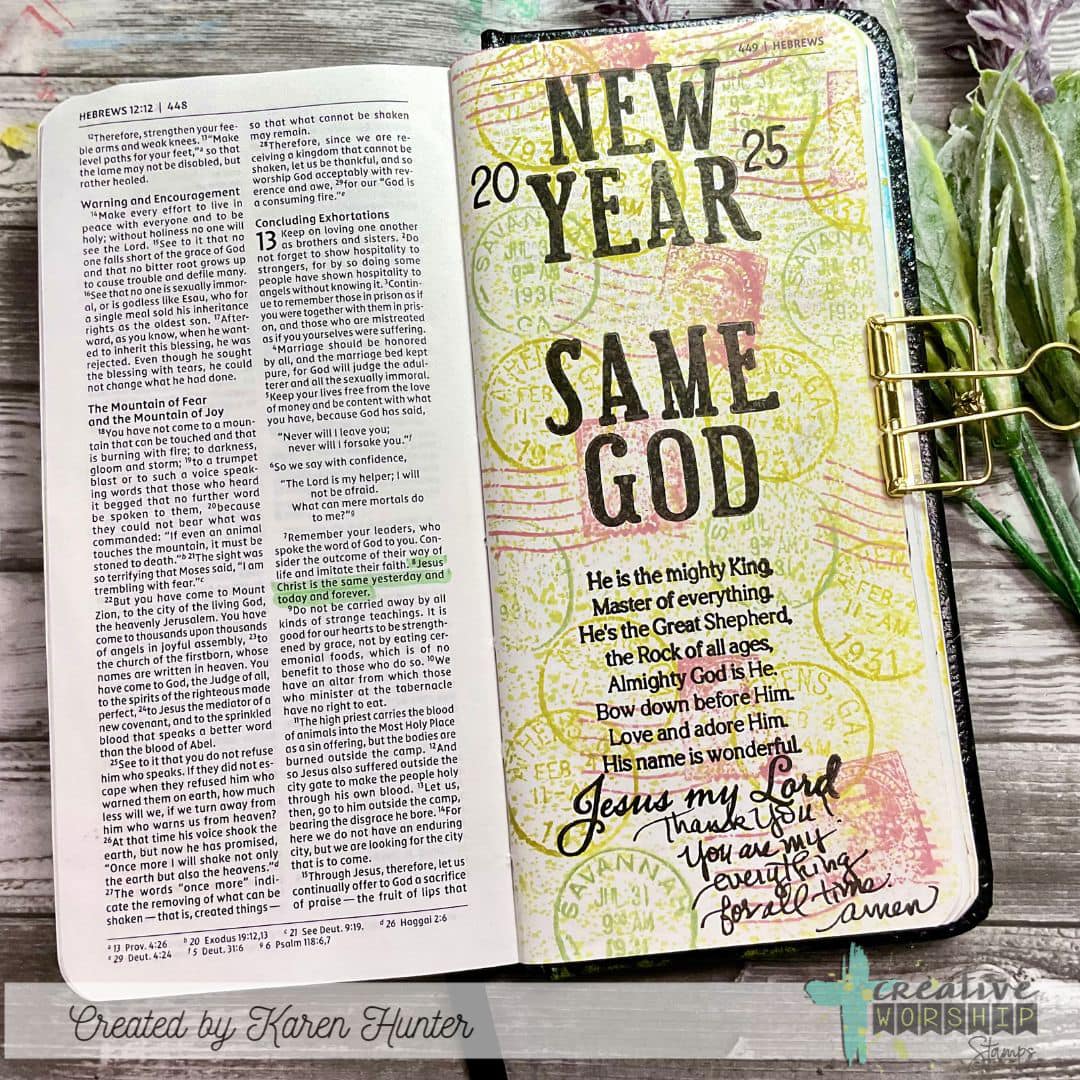 HEBREWS 12:12 | 448
12Therefore, strengthen your fee-
ble arms and weak knees. 13"Make
level paths for your feet,"a so that
the lame may not be disabled, but
rather healed.
Warning and Encouragement
14Make every effort to live in
peace with everyone and to be
holy; without holiness no one will
see the Lord. 15See to it that no
one falls short of the grace of God
and that no bitter root grows up
to cause trouble and defile many.
16See that no one is sexually immor-
al, or is godless like Esau, who for
a single meal sold his inheritance
rights as the oldest son. 17After-
ward, as you know, when he want-
ed to inherit this blessing, he was
rejected. Even though he sought
the blessing with tears, he could
not change what he had done.
The Mountain of Fear
and the Mountain of Joy
18You have not come to a moun-
tain that can be touched and that
is burning with fire; to darkness,
gloom and storm; 19to a trumpet
blast or to such a voice speak-
ing words that those who heard
it begged that no further word
be spoken to them, 20because
they could not bear what was
commanded: "If even an animal
touches the mountain, it must be
stoned to death."b 21The sight was
so terrifying that Moses said, "I am
trembling with fear."c
22But you have come to Mount
Zion, to the city of the living God,
the heavenly Jerusalem. You have
come to thousands upon thousands
of angels in joyful assembly, 23to
the church of the firstborn, whose
names are written in heaven. You
have come to God, the Judge of all,
to the spirits of the righteous made
perfect, 24to Jesus the mediator of a
new covenant, and to the sprinkled
blood that speaks a better word
than the blood of Abel.
25See to it that you do not refuse
him who speaks. If they did not es-
cape when they refused him who
warned them on earth, how much
less will we, if we turn away from
him who warns us from heaven?
26At that time his voice shook the
earth, but now he has promised,
"Once more I will shake not only
the earth but also the heavens."d
27The words "once more" indi-
cate the removing of what can be
shaken—that is, created things—
so that what cannot be shaken
may remain.
28Therefore, since we are re-
ceiving a kingdom that cannot be
shaken, let us be thankful, and so
worship God acceptably with rev-
erence and awe, 29for our "God is
a consuming fire."e
Concluding Exhortations
13 Keep on loving one another
as brothers and sisters. 2Do
not forget to show hospitality to
strangers, for by so doing some
people have shown hospitality to
angels without knowing it. 3Contin-
ue to remember those in prison as if
you were together with them in pris-
on, and those who are mistreated
as if you yourselves were suffering.
4Marriage should be honored
by all, and the marriage bed kept
pure, for God will judge the adul-
terer and all the sexually immoral.
5Keep your lives free from the love
of money and be content with what
you have, because God has said,
"Never will I leave you;
never will I forsake you."f
6So we say with confidence,
"The Lord is my helper; I will
not be afraid.
What can mere mortals do
to me?"g
7Remember your leaders, who
spoke the word of God to you. Con-
sider the outcome of their way of
life and imitate their faith. 8Jesus
Christ is the same yesterday and
today and forever.
9Do not be carried away by all
kinds of strange teachings. It is
good for our hearts to be strength-
ened by grace, not by eating cer-
emonial foods, which is of no
benefit to those who do so. 10We
have an altar from which those
who minister at the tabernacle
have no right to eat.
11The high priest carries the blood
of animals into the Most Holy Place
as a sin offering, but the bodies are
burned outside the camp. 12And
so Jesus also suffered outside the
city gate to make the people holy
through his own blood. 13Let us,
then, go to him outside the camp,
bearing the disgrace he bore. 14For
here we do not have an enduring
city, but we are looking for the city
that is to come.
15Through Jesus, therefore, let us
continually offer to God a sacrifice
of praise—the fruit of lips that
a 13 Prov. 4:26 b 20 Exodus 19:12,13 c 21 See Deut. 9:19. d 26 Haggai 2:6
e 29 Deut. 4:24 f 5 Deut. 31:6 g 6 Psalm 118:6,7
449 | HEBREWS
NEW
20 YEAR 25
SAME
GOD
He is the mighty King,
Master of everything.
He's the Great Shepherd,
the Rock of all ages,
Almighty God is He.
Bow down before Him.
Love and adore Him.
His name is wonderful.
Jesus my Lord
Thank You!
You are my
everything
for all time.
amen
SAVANNAH
JUL 31
9 AM
1931
GA
ATHENS, GA
FEB 4
11-AM
1931
SAVANNAH
JUL 31
9 AM
1931
Created by Karen Hunter
creative
WORSHIP
Stamps